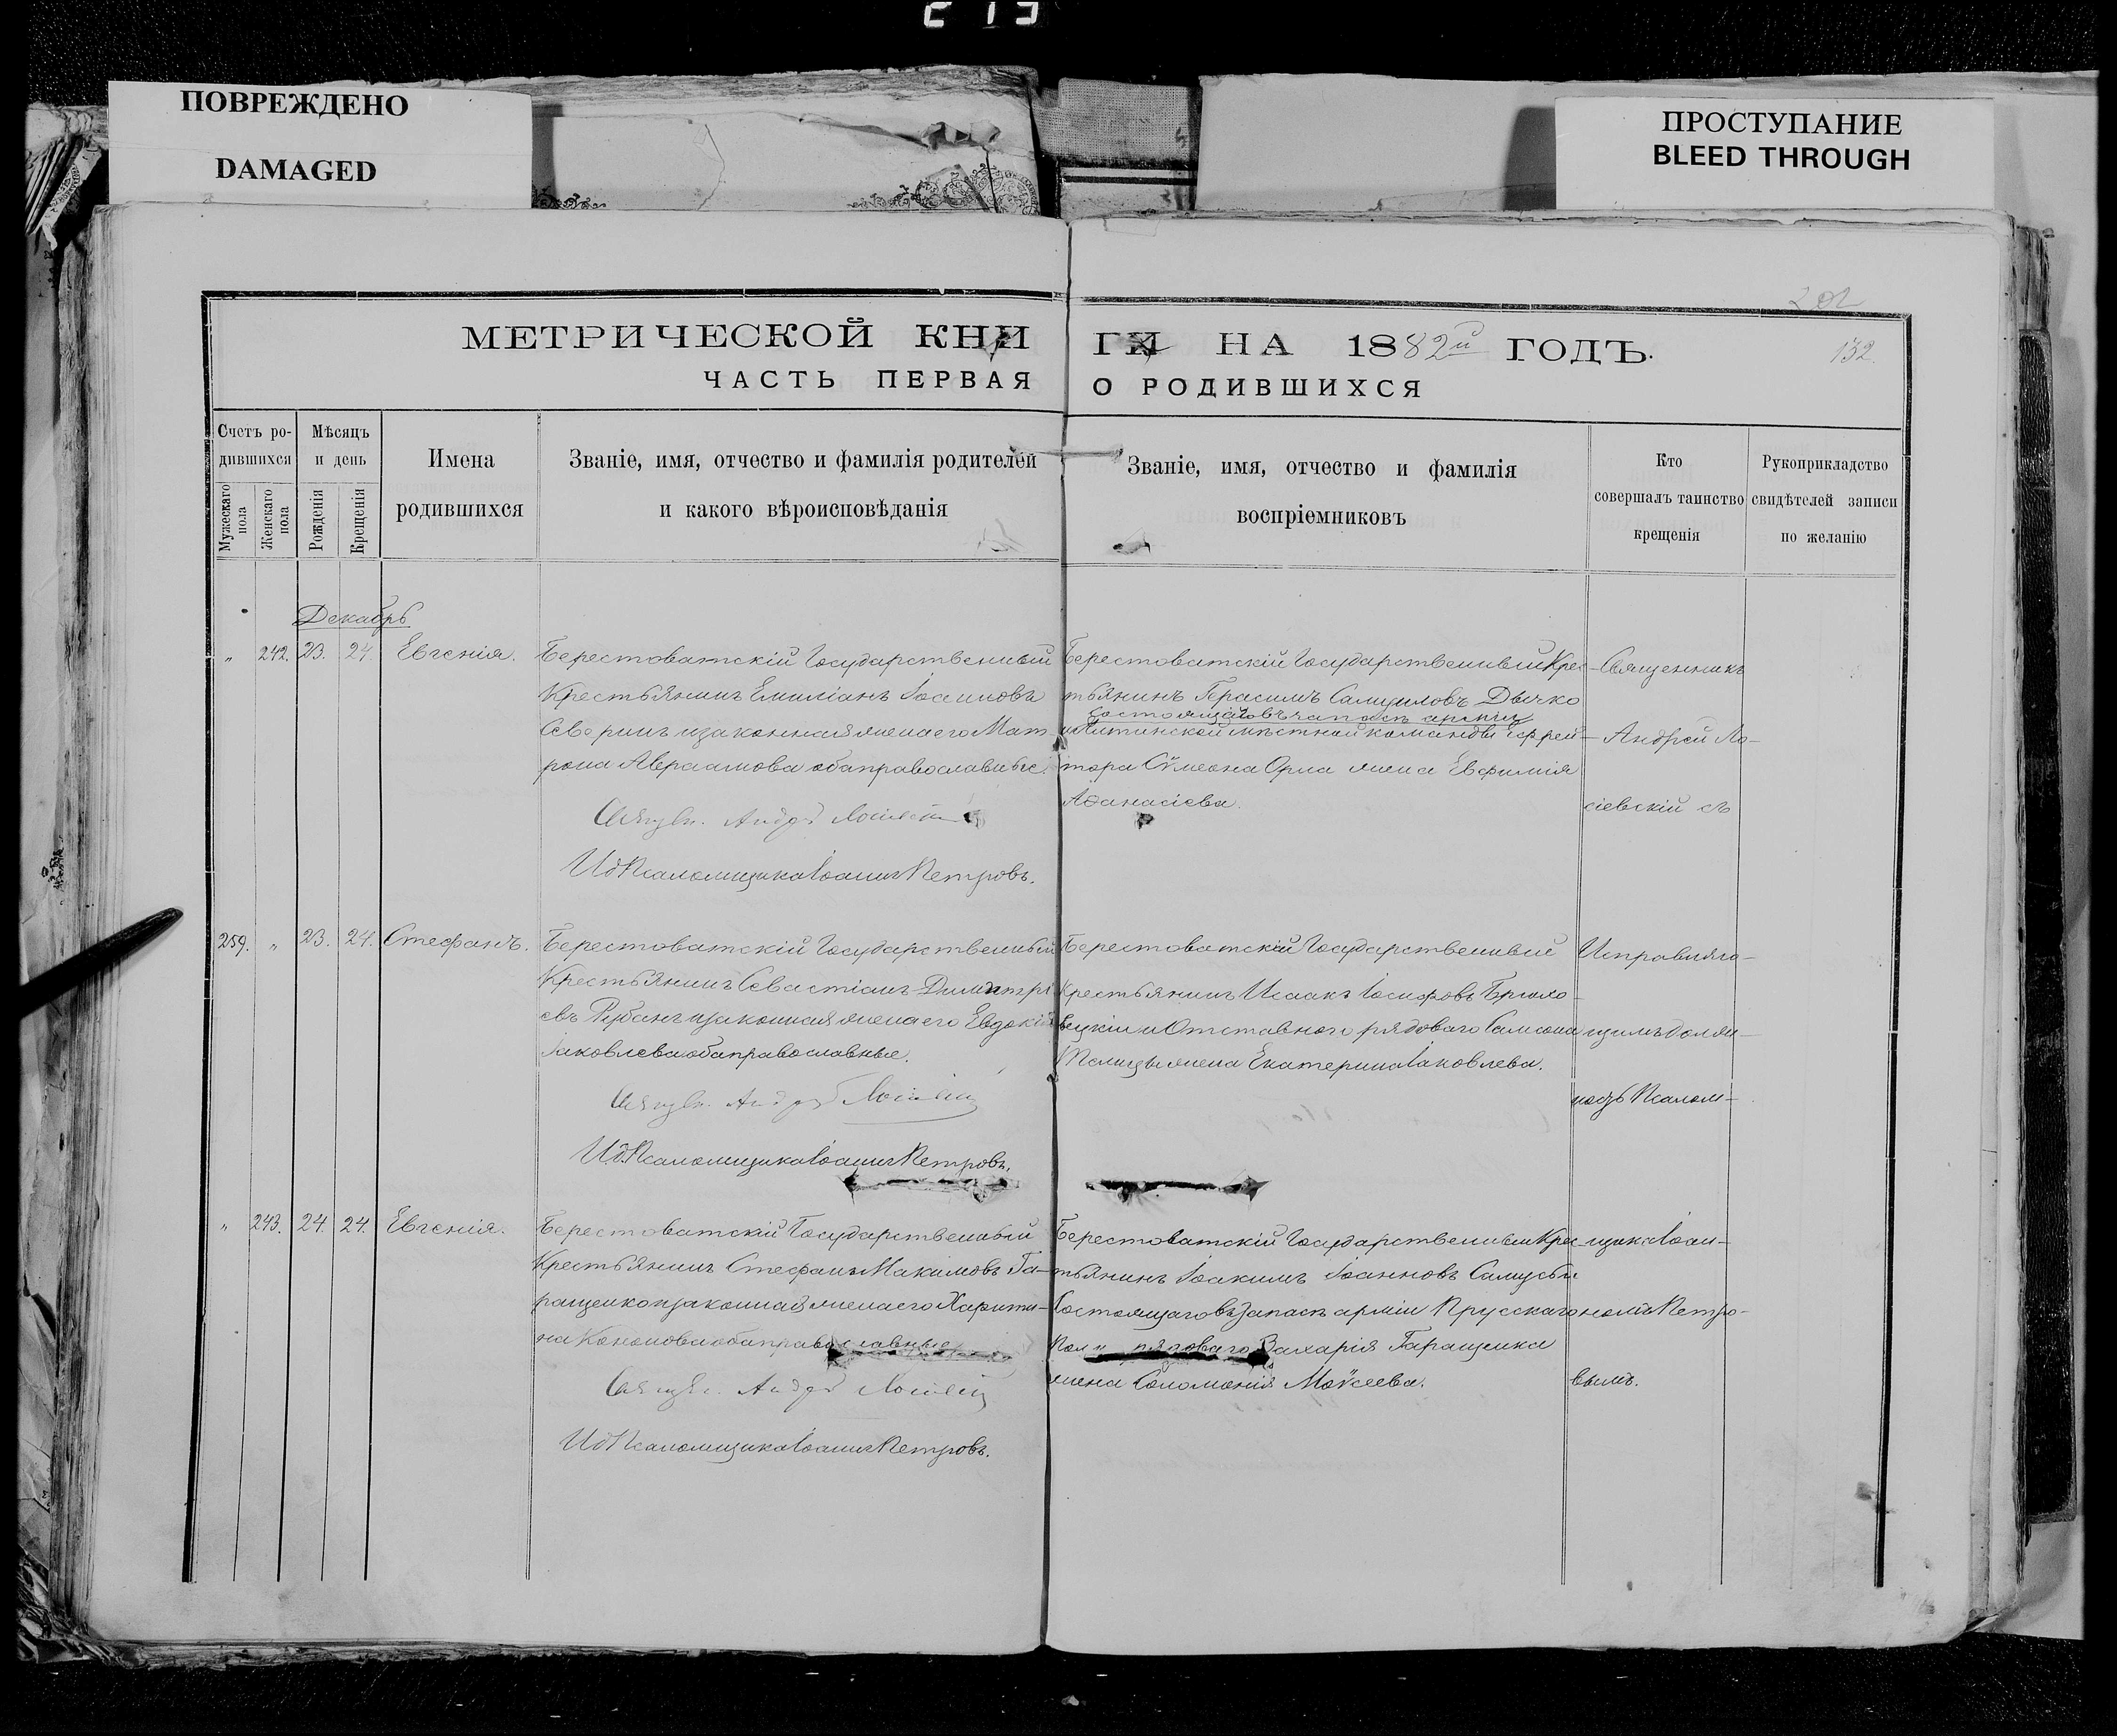 213
ПОВРЕЖДЕНО
DAMAGED
ПРОСТУПАНИЕ
BLEED THROUGH
202
МЕТРИЧЕСКОЙ КНИГИ НА 1882й ГОДЪ.
132.
ЧАСТЬ ПЕРВАЯ О РОДИВШИХСЯ
Счетъ родившихся
Мужескаго пола
Женскаго пола
Мѣсяцъ и день
Рожденія
Крещенія
Имена
родившихся
Званіе, имя, отчество и фамилія родителей
и какого вѣроисповѣданія
Званіе, имя, отчество и фамилія
воспріемниковъ
Кто
совершалъ таинство
крещенія
Рукоприкладство
свидѣтелей записи
по желанію
Декабрь
" 242. 23. 24 Евгенія.
Берестоватскій Государственный
Крестьянинъ Емиліанъ
и законная жена его Мат
рона Авраамова оба православные.
Андрей
Ид Псаломщика Іоаннъ Петровъ.
Берестоватскій Государственный Крес-
тьянинъ Герасимъ Самуиловъ Дычко
состоящаго въ запасѣ арміи
мѣстной команды ефрей-
тора Сѵмеона Орла жена Евфимія
Аѳанасіева.
259. " 23. 24. Стефанъ.
Берестоватскій Государственный
Крестьянинъ Севастіанъ Димитрі
евъ Рубанъ и законная жена его Евдокія
Іаковлева оба православные.
Андрей
И.д. Псаломщика Іоаннъ Петровъ.
Берестоватскій Государственный
Крестьянинъ Исаакъ Іосифовъ Брюхо-
вецкій и Отставного рядоваго Самсона
жена Екатерина Іаковлева.
" 243. 24. 24. Евгенія.
Берестоватскій Государственный
Крестьянинъ Стефанъ Макимовъ Га-
ращенко и законная жена его Харити-
на Кононова оба православные
Андрей
Ид Псаломщика Іоаннъ Петровъ.
Берестоватскій Государственный Крес-
тьянинъ Іоакимъ Іоанновъ
Состоящаго въ запасѣ арміи Прусскаго
рядоваго Захарія Гаращенка
жена Соломонія Моѵсеева.
Священникъ
Андрей Ло-
сіевскій съ
Исправляю-
щимъ долж-
ность Псалом-
щика Іоан-
номъ Петро-
вымъ.